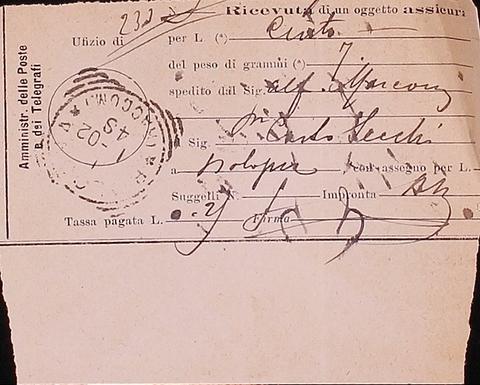 Amministr. delle Poste
e dei Telegrafi
Ricevuta di un oggetto assicur
Ufizio di per L (*) Cento
del peso di grammi (*) 7
spedito dal Sig. Alf. Marconi
a Sig. Carlo Secchi
a Bologna , con assegno per L.
Suggelli N. 2 Impronta
Tassa pagata L. Firma